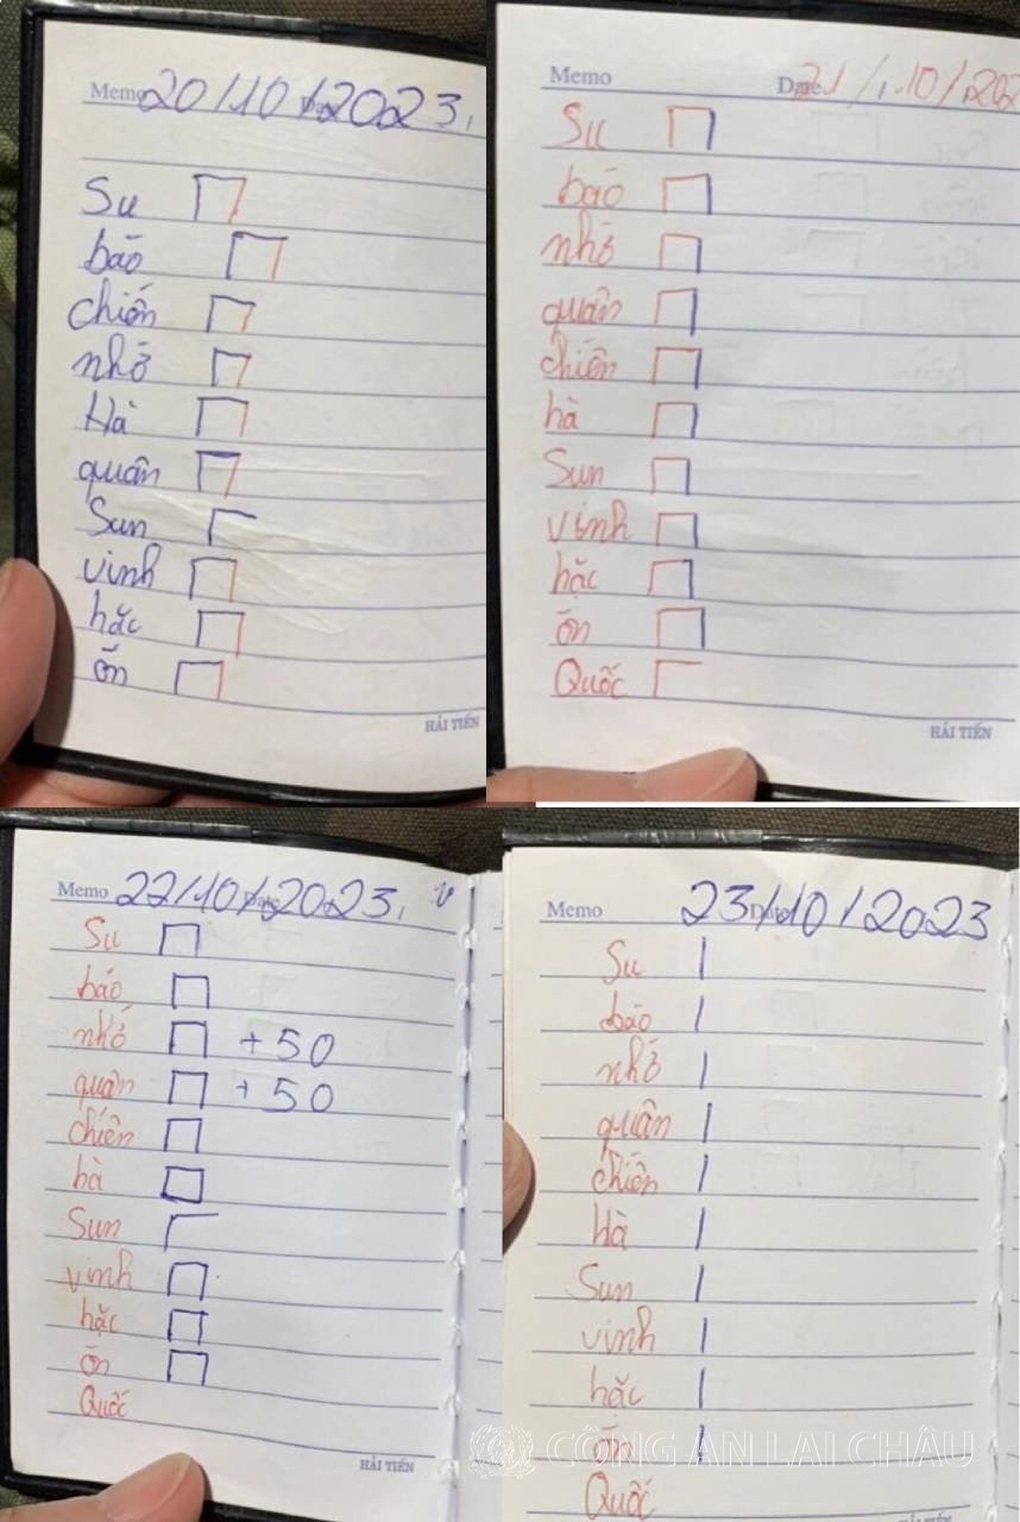 Memo 20/10/2023,
Su
báo
chiến
nhớ
Hà
quân
Sun
vinh
hắc
ổn
HẢI TIẾN
Memo Date 21/10/202
Su
báo
nhớ
quân
chiến
hà
Sun
vinh
hắc
ổn
Quốc
HẢI TIẾN
Memo Date 22/10/2023,
Su
báo
nhớ +50
quân +50
chiến
hà
Sun
vinh
hắc
ổn
Quốc
HẢI TIẾN
Memo Date 23/10/2023
Su
báo
nhớ
quân
chiến
Hà
Sun
vinh
hắc
ổn
Quốc
CÔNG AN LAI CHÂU